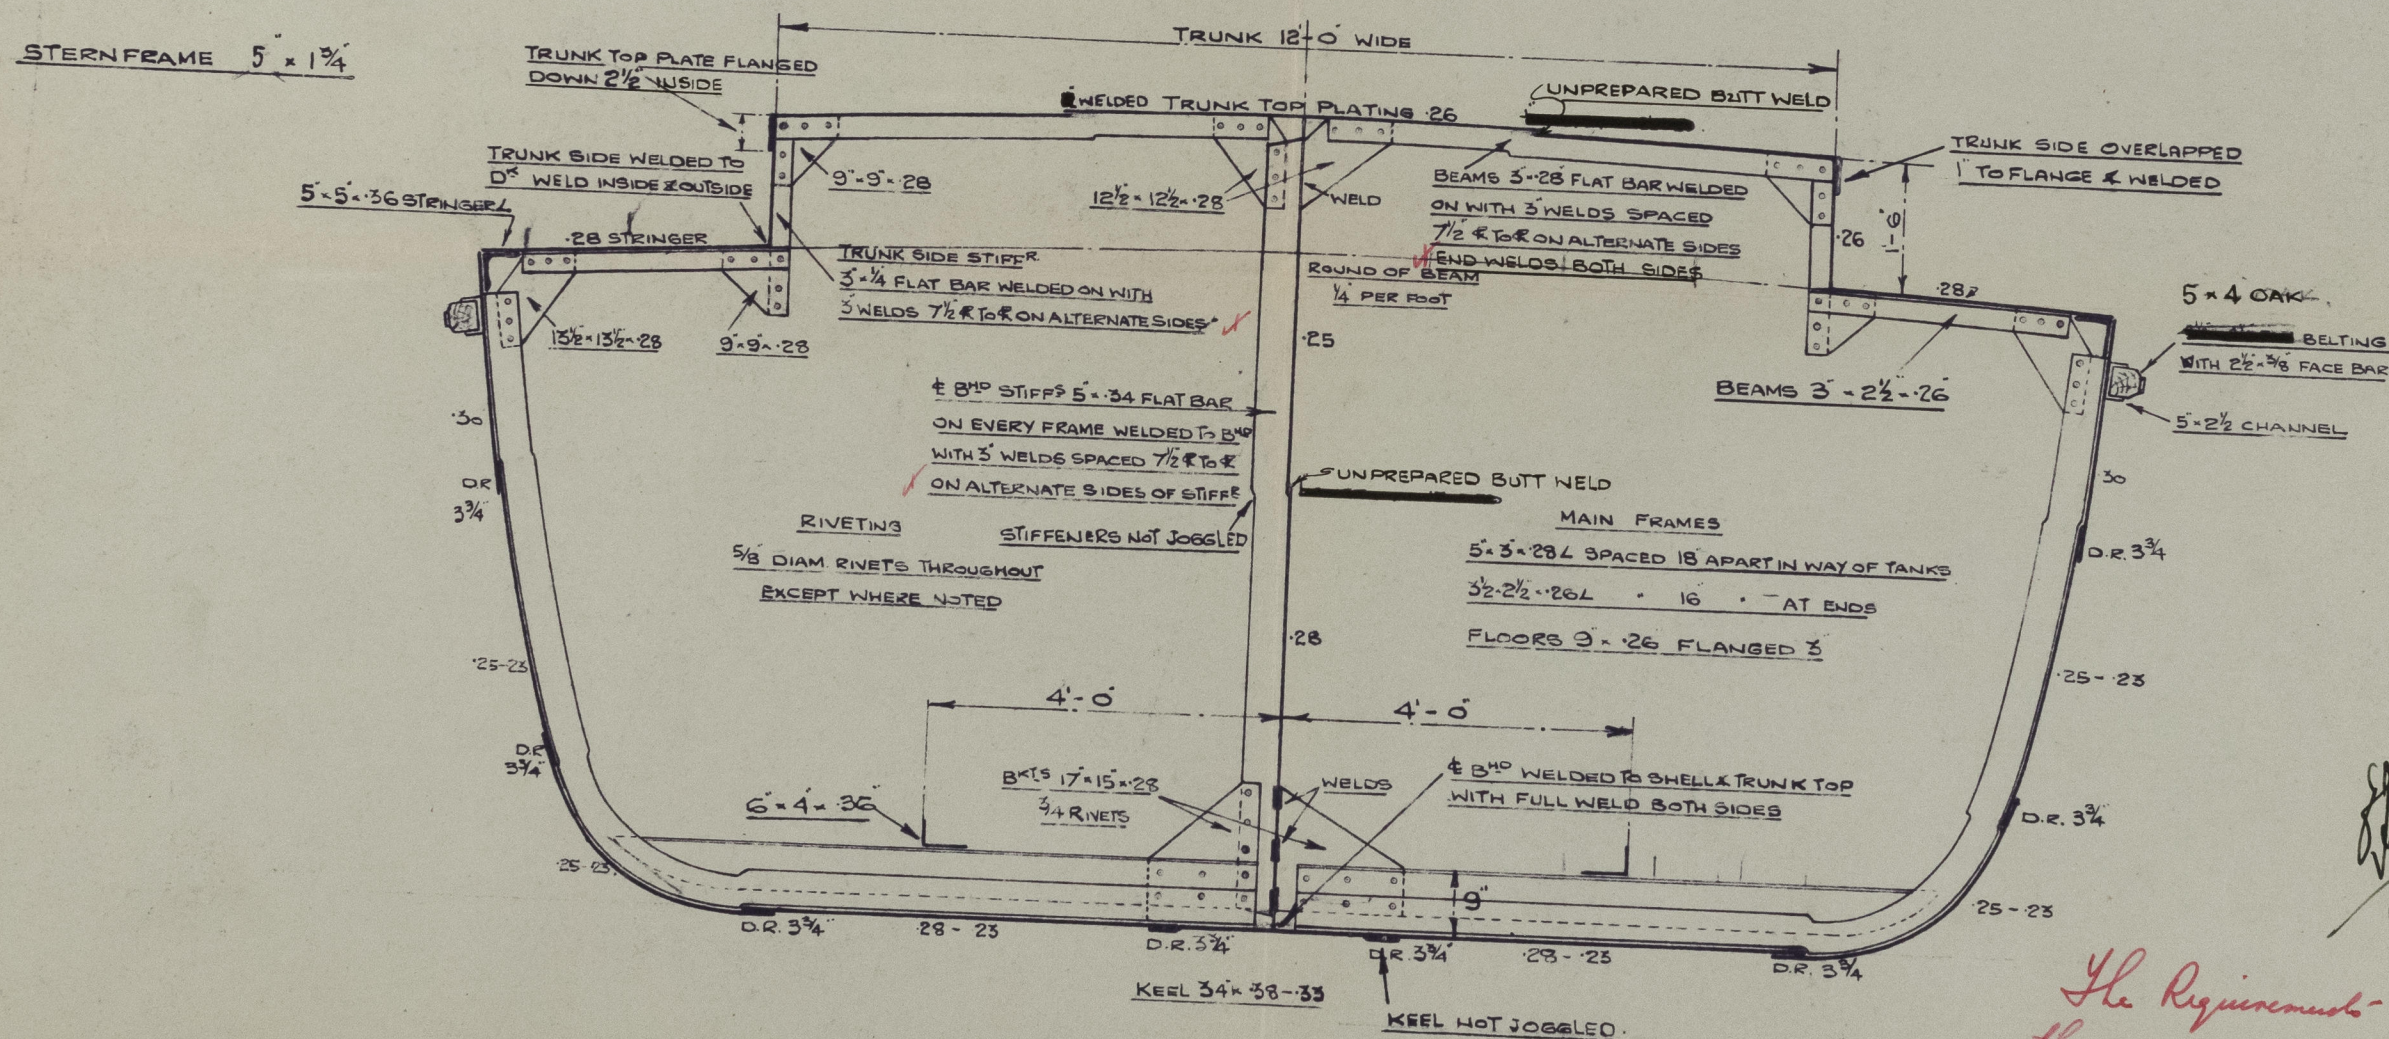 STERNFRAME 5" × 1¾"
TRUNK 12'-0" WIDE
TRUNK TOP PLATE FLANGED
DOWN 2½" INSIDE
WELDED TRUNK TOP PLATING .26
UNPREPARED BUTT WELD
TRUNK SIDE OVERLAPPED
1" TO FLANGE & WELDED
TRUNK SIDE WELDED TO
DK WELD INSIDE & OUTSIDE
5" × 5" × .36 STRINGER L
.28 STRINGER
9" × 9" × .28
12½" × 12½" × .28
WELD
BEAMS 3" × .28 FLAT BAR WELDED
ON WITH 3" WELDS SPACED
7½" ℄ TO ℄ ON ALTERNATE SIDES
END WELDS BOTH SIDES
.26
1'-6"
TRUNK SIDE STIFFR
3" × ¼ FLAT BAR WELDED ON WITH
3" WELDS 7½" ℄ TO ℄ ON ALTERNATE SIDES
ROUND OF BEAM
¼" PER FOOT
.28
5" × 4" OAK
BELTING
WITH 2½" × ⅜ FACE BAR
13½" × 13½" × .28
9" × 9" × .28
.25
BEAMS 3" × 2½" × .26"
5" × 2½ CHANNEL
℄ BHD STIFFS 5" × .34 FLAT BAR
ON EVERY FRAME WELDED TO BHD
WITH 3" WELDS SPACED 7½" ℄ TO ℄
ON ALTERNATE SIDES OF STIFFR
STIFFENERS NOT JOGGLED
UNPREPARED BUTT WELD
.30
D.R
3¾"
.30
D.R. 3¾"
RIVETING
5/8" DIAM. RIVETS THROUGHOUT
EXCEPT WHERE NOTED
MAIN FRAMES
5" × 3" × .28 L SPACED 18" APART IN WAY OF TANKS
3½ × 2½ × .26 L " 16 " AT ENDS
FLOORS 9" × .26 FLANGED 3"
.28
.25-.23
.25-.23
4'-0"
4'-0"
D.R
3¾"
6" × 4" × .36"
BKTS 17" × 15" × .28
¾ RIVETS
WELDS
℄ BHD WELDED TO SHELL & TRUNK TOP
WITH FULL WELD BOTH SIDES
D.R. 3¾"
.25-.23
9"
.25-.23
D.R. 3¾"
.28-.23
D.R. 3¾"
D.R. 3¾"
.28-.23
D.R. 3¾
KEEL 34" × .38-.33
KEEL NOT JOGGLED.
The Requirements